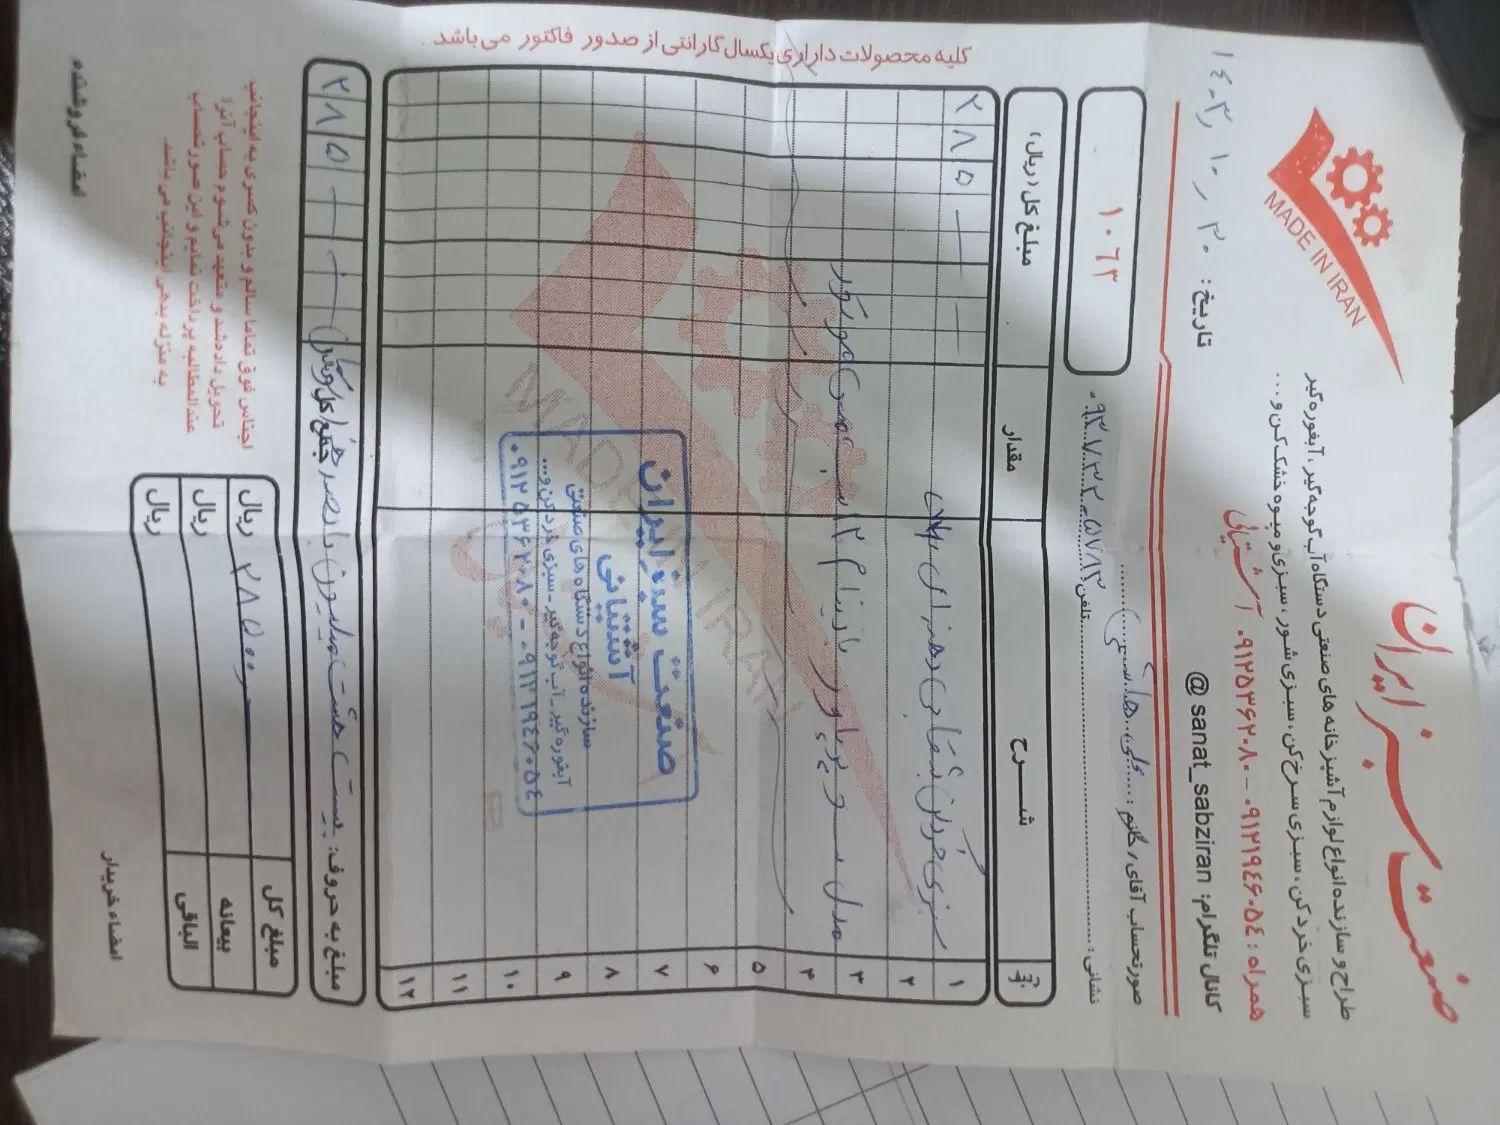 صنعت سبز ایران
طراح و سازنده انواع لوازم آشپزخانه های صنعتی دستگاه آب گوجه گیر، آبغوره گیر
سبزی خرد کن، سبزی سرخ کن، سبزی شور، سبزی و میوه خشک کن و...
همراه: ۰۹۱۲۱۹۴۶۰۵۴ - ۰۹۱۲۵۳۶۲۰۸۰ آشتیانی
کانال تلگرام: sanat_sabziran @
MADE IN IRAN
تاریخ: ۱۴۰۳٫۱۰٫۳۰
۱۰۶۳
صورتحساب آقای / خانم:
نشانی:
تلفن: ۰۹۳۰۷۳۲۰۵۷۸۳
ردیف
شــــرح
مقدار
مبلغ کل (ریال)
۱
سبزی خردکن بشقابی دهنه ای
۲۸۵
۲
۳
مدل ۳
۴
۵
۶
۷
۸
۹
۱۰
۱۱
۱۲
MADE IN IRAN
صنعت سبز ایران
آشتیانی
سازنده انواع دستگاه های صنعتی
آبغوره گیر - آب گوجه گیر - سبزی خرد کن و...
۰۹۱۲۱۹۴۶۰۵۴ - ۰۹۱۲۵۳۶۲۰۸۰
مبلغ به حروف: بیست هشت میلیون پانصد هزار
جمع کل
۲۸۵
مبلغ کل
۲۸۵۰۰
ریال
بیعانه
ریال
الباقی
ریال
اجناس فوق تماما سالم و بدون کسری به اینجانب
تحویل داده شد و متعهد می شوم حساب آنرا
عندالمطالبه پرداخت نمایم و این صورتحساب
به منزله بدهی اینجانب می باشد.
امضاء خریدار
امضاء فروشنده
کلیه محصولات دارای یکسال گارانتی از صدور فاکتور می باشد.